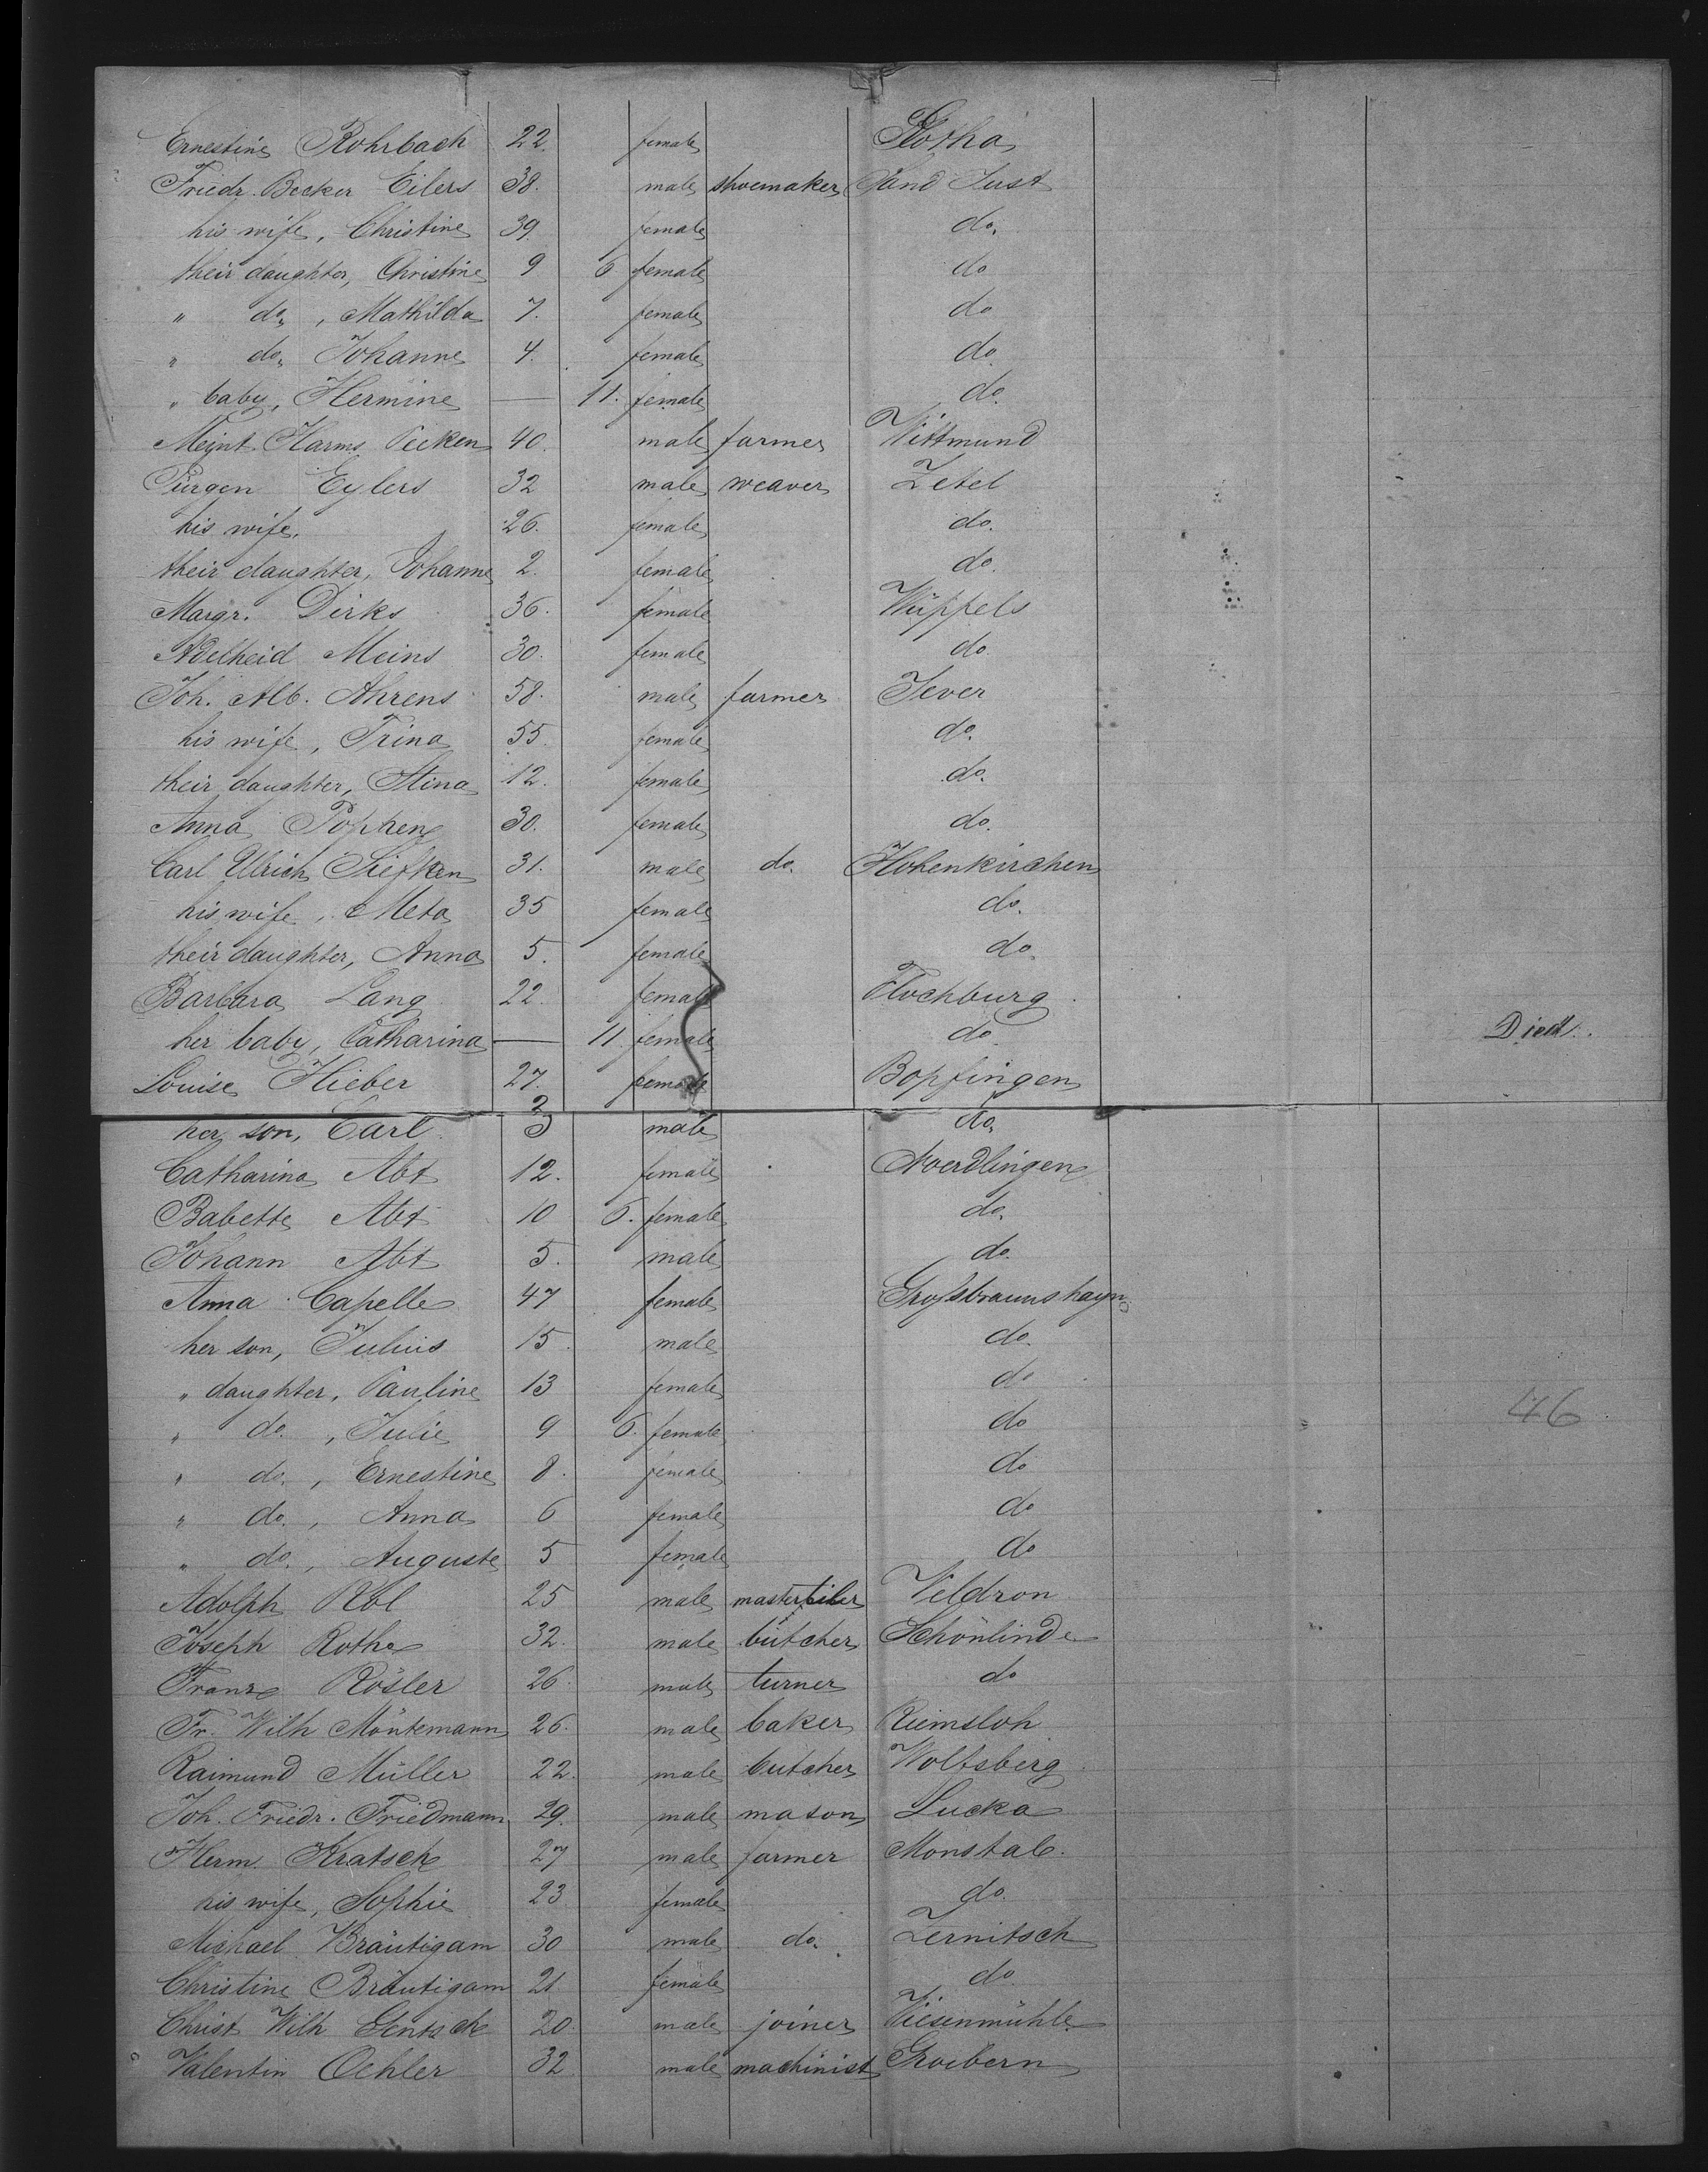 Ernestine Rohrbach 22. female Gotha
Friedr. Becker Eilers 38. male shoemaker Sand Sust
his wife, Christine 39. female do.
their daughter, Christine 9 6 female do
" do., Mathilda 7. female do
" do, Johanne 4. female do.
" baby, Hermine — 11. female do.
Meint Harms Peeken 40. male farmer Wittmund
Jürgen Eylers 32 male weaver Zetel
his wife. 26. female do.
their daughter, Johanne 2. female do.
Margr. Dirks 36. female Wüppels
Adelheid Meins 30. female do.
Joh. Alb. Ahrens 58. male farmer Jever
his wife, Trina 55. female do.
their daughter, Stina 12. female do.
Anna Popken 30. female do.
Carl Ulrich Siefken 31. male do. Hohenkirchen
his wife, Meta 35 female do.
their daughter, Anna 5. female do.
Barbara Lang 22. female Flochburg
her baby, Catharina — 11. female do. Died.
Louise Hieber 27. female Bopfingen
her son, Carl 3 male do.
Catharina Abt 12. female Noerdlingen
Babette Abt 10 6. female do.
Johann Abt 5. male do.
Anna Capelle 47 female Grossbraunshayn
her son, Julius 15. male do.
" daughter, Pauline 13 female do
" do., Julie 9 6. female do
" do., Ernestine 8. female do
" do., Anna 6 female do
" do., Auguste 5 female do
46
Adolph Rbl 25 male mastertiler Veldron
Joseph Rothe 32. male butcher Schönlinde
Franz Rösler 26 male turner do
Fr. Wilh Möntemann 26. male baker Riemsloh
Raimund Müller 22. male butcher Wolfsberg
Joh. Friedr. Friedmann 29. male mason Lucka
Herm. Kratsch 27 male farmer Monstab.
his wife, Sophie 23 female do.
Michael Bräutigam 30 male do. Zernitsch
Christine Bräutigam 21 female do.
Christ Wilh Gentsch 20. male joiner Wiesenmühle
Valentin Oehler 32 male machinist Groebern